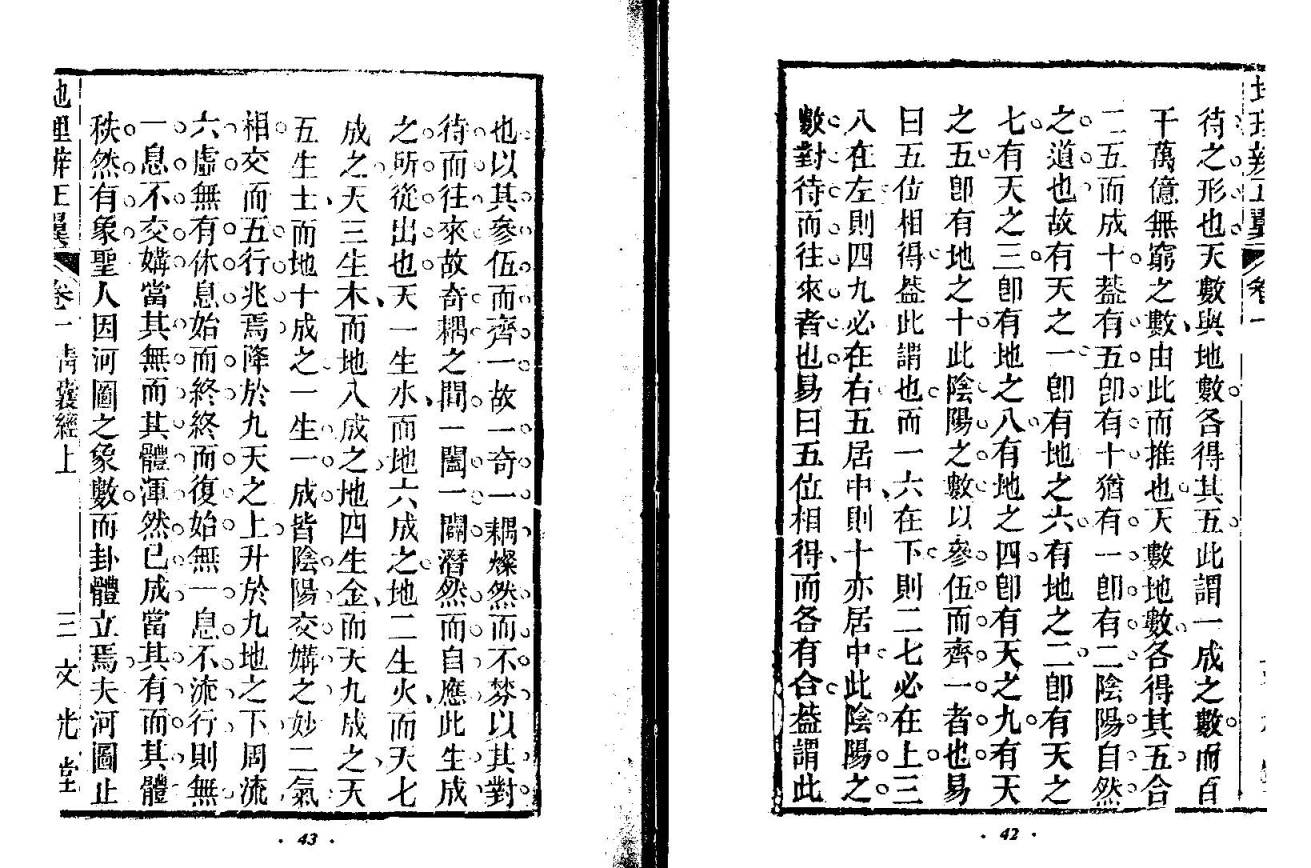 待之形也天數與地數各得其五此謂一成之數而百
千萬億無窮之數由此而推也天數地數各得其五合
二五而成十葢有五卽有十猶有一卽有二陰陽自然
之道也故有天之一卽有地之六有地之二卽有天之
七有天之三卽有地之八有地之四卽有天之九有天
之五卽有地之十此陰陽之數以參伍而齊一者也易
曰五位相得葢此謂也而一六在下則二七必在上三
八在左則四九必在右五居中則十亦居中此陰陽之
數對待而往來者也易曰五位相得而各有合葢謂此
卷一
42
也以其參伍而齊一故一奇一耦燦然而不棼以其對
待而往來故奇耦之間一闔一闢潛然而自應此生成
之所從出也天一生水而地六成之地二生火而天七
成之天三生木而地八成之地四生金而天九成之天
五生土而地十成之一生一成皆陰陽交媾之妙二氣
相交而五行兆焉降於九天之上升於九地之下周流
六虛無有休息始而終終而復始無一息不流行則無
一息不交媾當其無而其體渾然已成當其有而其體
秩然有象聖人因河圖之象數而卦體立焉夫河圖止
地理辨正翼 卷一 靑囊經上 三 文光堂
43